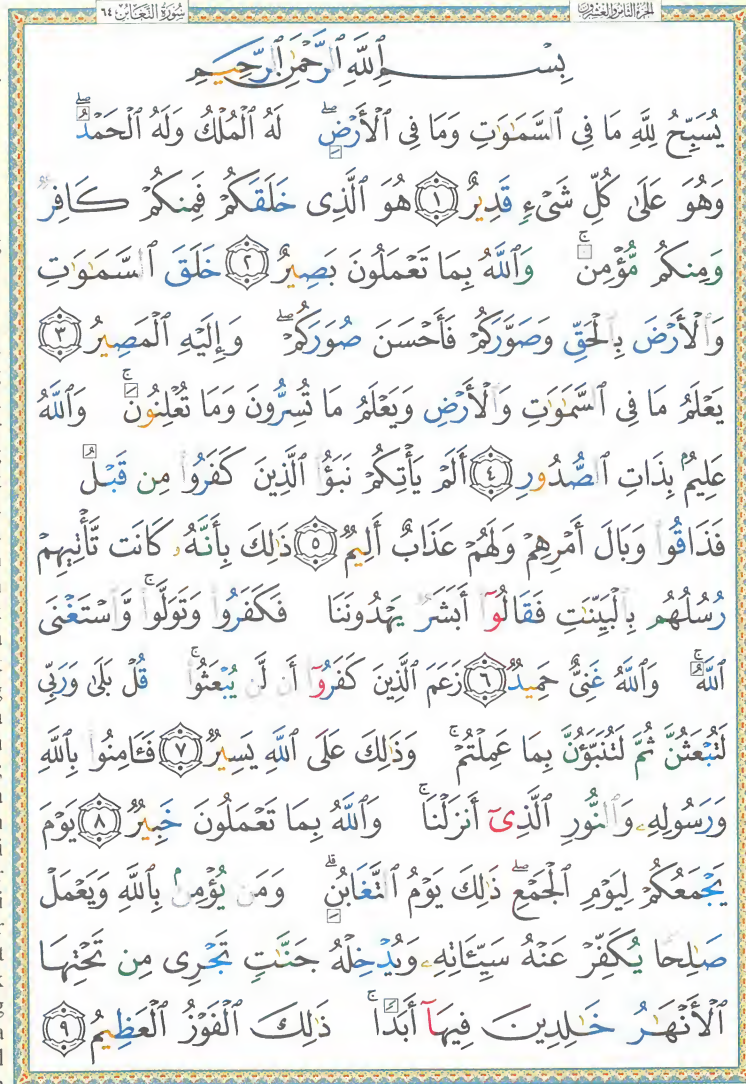 سُورَةُ التَّغَابُن ٦٤ الجُزْءُ الثَّامِنُ وَالعِشْرُونَ
بِسْمِ ٱللَّهِ ٱلرَّحْمَٰنِ ٱلرَّحِيمِ
يُسَبِّحُ لِلَّهِ مَا فِى ٱلسَّمَٰوَٰتِ وَمَا فِى ٱلْأَرْضِۖ لَهُ ٱلْمُلْكُ وَلَهُ ٱلْحَمْدُۖ
وَهُوَ عَلَىٰ كُلِّ شَىْءٍ قَدِيرٌ ١ هُوَ ٱلَّذِى خَلَقَكُمْ فَمِنكُمْ كَافِرٌ
وَمِنكُم مُّؤْمِنٌۚ وَٱللَّهُ بِمَا تَعْمَلُونَ بَصِيرٌ ٢ خَلَقَ ٱلسَّمَٰوَٰتِ
وَٱلْأَرْضَ بِٱلْحَقِّ وَصَوَّرَكُمْ فَأَحْسَنَ صُوَرَكُمْۖ وَإِلَيْهِ ٱلْمَصِيرُ ٣
يَعْلَمُ مَا فِى ٱلسَّمَٰوَٰتِ وَٱلْأَرْضِ وَيَعْلَمُ مَا تُسِرُّونَ وَمَا تُعْلِنُونَۚ وَٱللَّهُ
عَلِيمٌۢ بِذَاتِ ٱلصُّدُورِ ٤ أَلَمْ يَأْتِكُمْ نَبَؤُا۟ ٱلَّذِينَ كَفَرُوا۟ مِن قَبْلُ
فَذَاقُوا۟ وَبَالَ أَمْرِهِمْ وَلَهُمْ عَذَابٌ أَلِيمٌ ٥ ذَٰلِكَ بِأَنَّهُۥ كَانَت تَّأْتِيهِمْ
رُسُلُهُم بِٱلْبَيِّنَٰتِ فَقَالُوٓا۟ أَبَشَرٌ يَهْدُونَنَا فَكَفَرُوا۟ وَتَوَلَّوا۟ۚ وَّٱسْتَغْنَى
ٱللَّهُۚ وَٱللَّهُ غَنِىٌّ حَمِيدٌ ٦ زَعَمَ ٱلَّذِينَ كَفَرُوٓا۟ أَن لَّن يُبْعَثُوا۟ۚ قُلْ بَلَىٰ وَرَبِّى
لَتُبْعَثُنَّ ثُمَّ لَتُنَبَّؤُنَّ بِمَا عَمِلْتُمْۚ وَذَٰلِكَ عَلَى ٱللَّهِ يَسِيرٌ ٧ فَـَٔامِنُوا۟ بِٱللَّهِ
وَرَسُولِهِۦ وَٱلنُّورِ ٱلَّذِىٓ أَنزَلْنَاۚ وَٱللَّهُ بِمَا تَعْمَلُونَ خَبِيرٌ ٨ يَوْمَ
يَجْمَعُكُمْ لِيَوْمِ ٱلْجَمْعِۖ ذَٰلِكَ يَوْمُ ٱلتَّغَابُنِۗ وَمَن يُؤْمِنۢ بِٱللَّهِ وَيَعْمَلْ
صَٰلِحًا يُكَفِّرْ عَنْهُ سَيِّـَٔاتِهِۦ وَيُدْخِلْهُ جَنَّٰتٍ تَجْرِى مِن تَحْتِهَا
ٱلْأَنْهَٰرُ خَٰلِدِينَ فِيهَآ أَبَدًاۚ ذَٰلِكَ ٱلْفَوْزُ ٱلْعَظِيمُ ٩